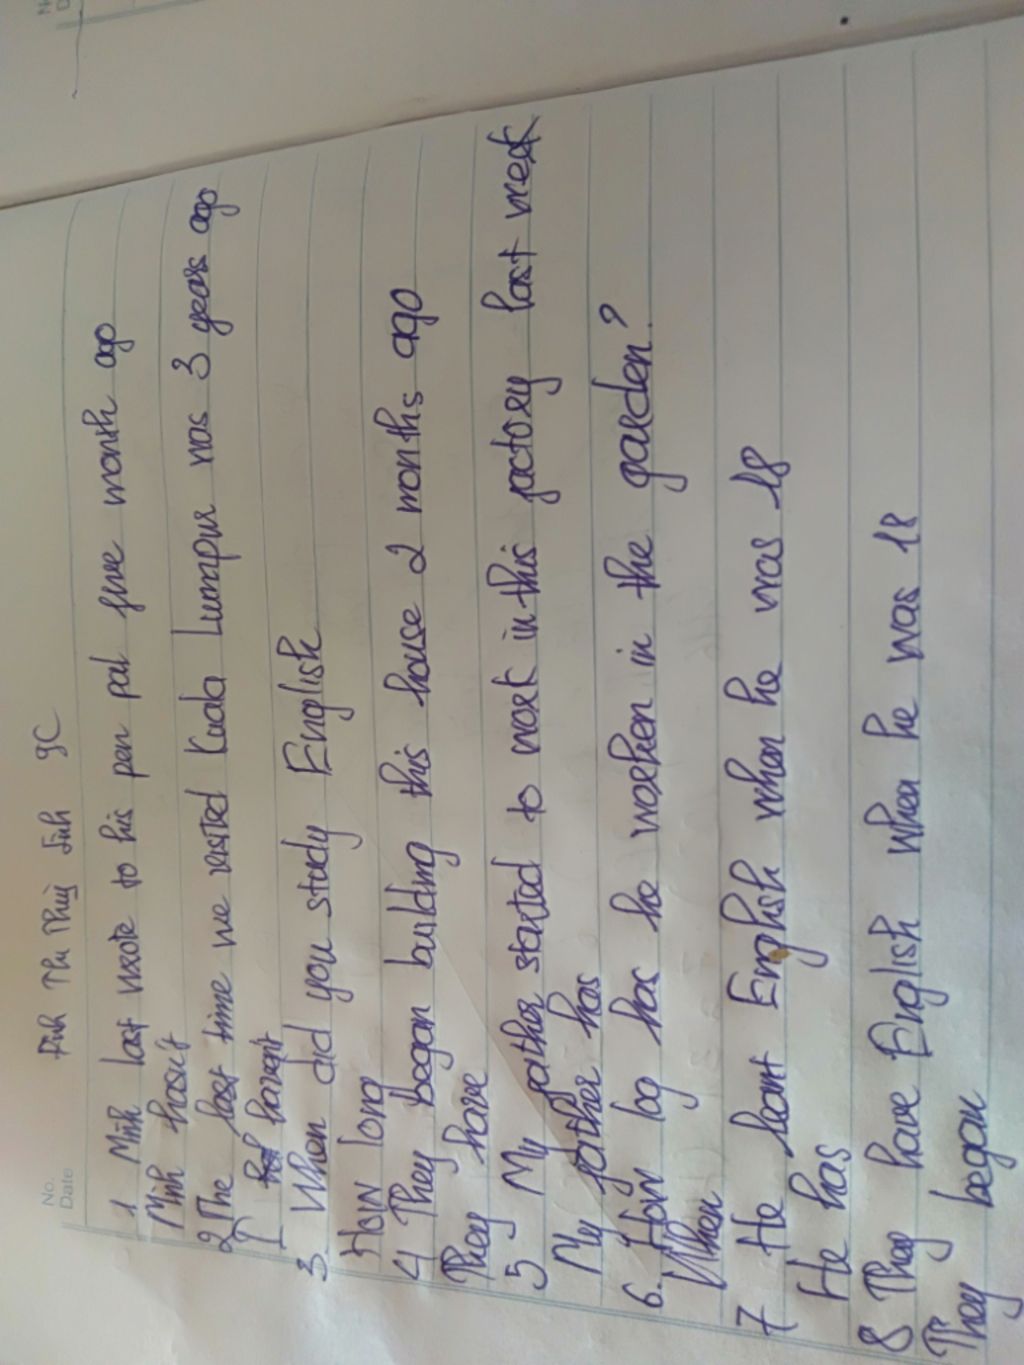 No.
Date
Đinh Thị Thuỳ Linh 9C
1 Minh last wrote to his pen pal five month ago
Minh hasn't
2 The last time we visted Kuala Lumpur was 3 years ago
I haven't
3. When did you study English
How long
4 They began building this house 2 months ago
They have
5 My father started to work in this factory last week
My father has
6. How log has he worken in the garden?
When
7 He leant English when he was 18
He has
8 They have English when he was 18
They began